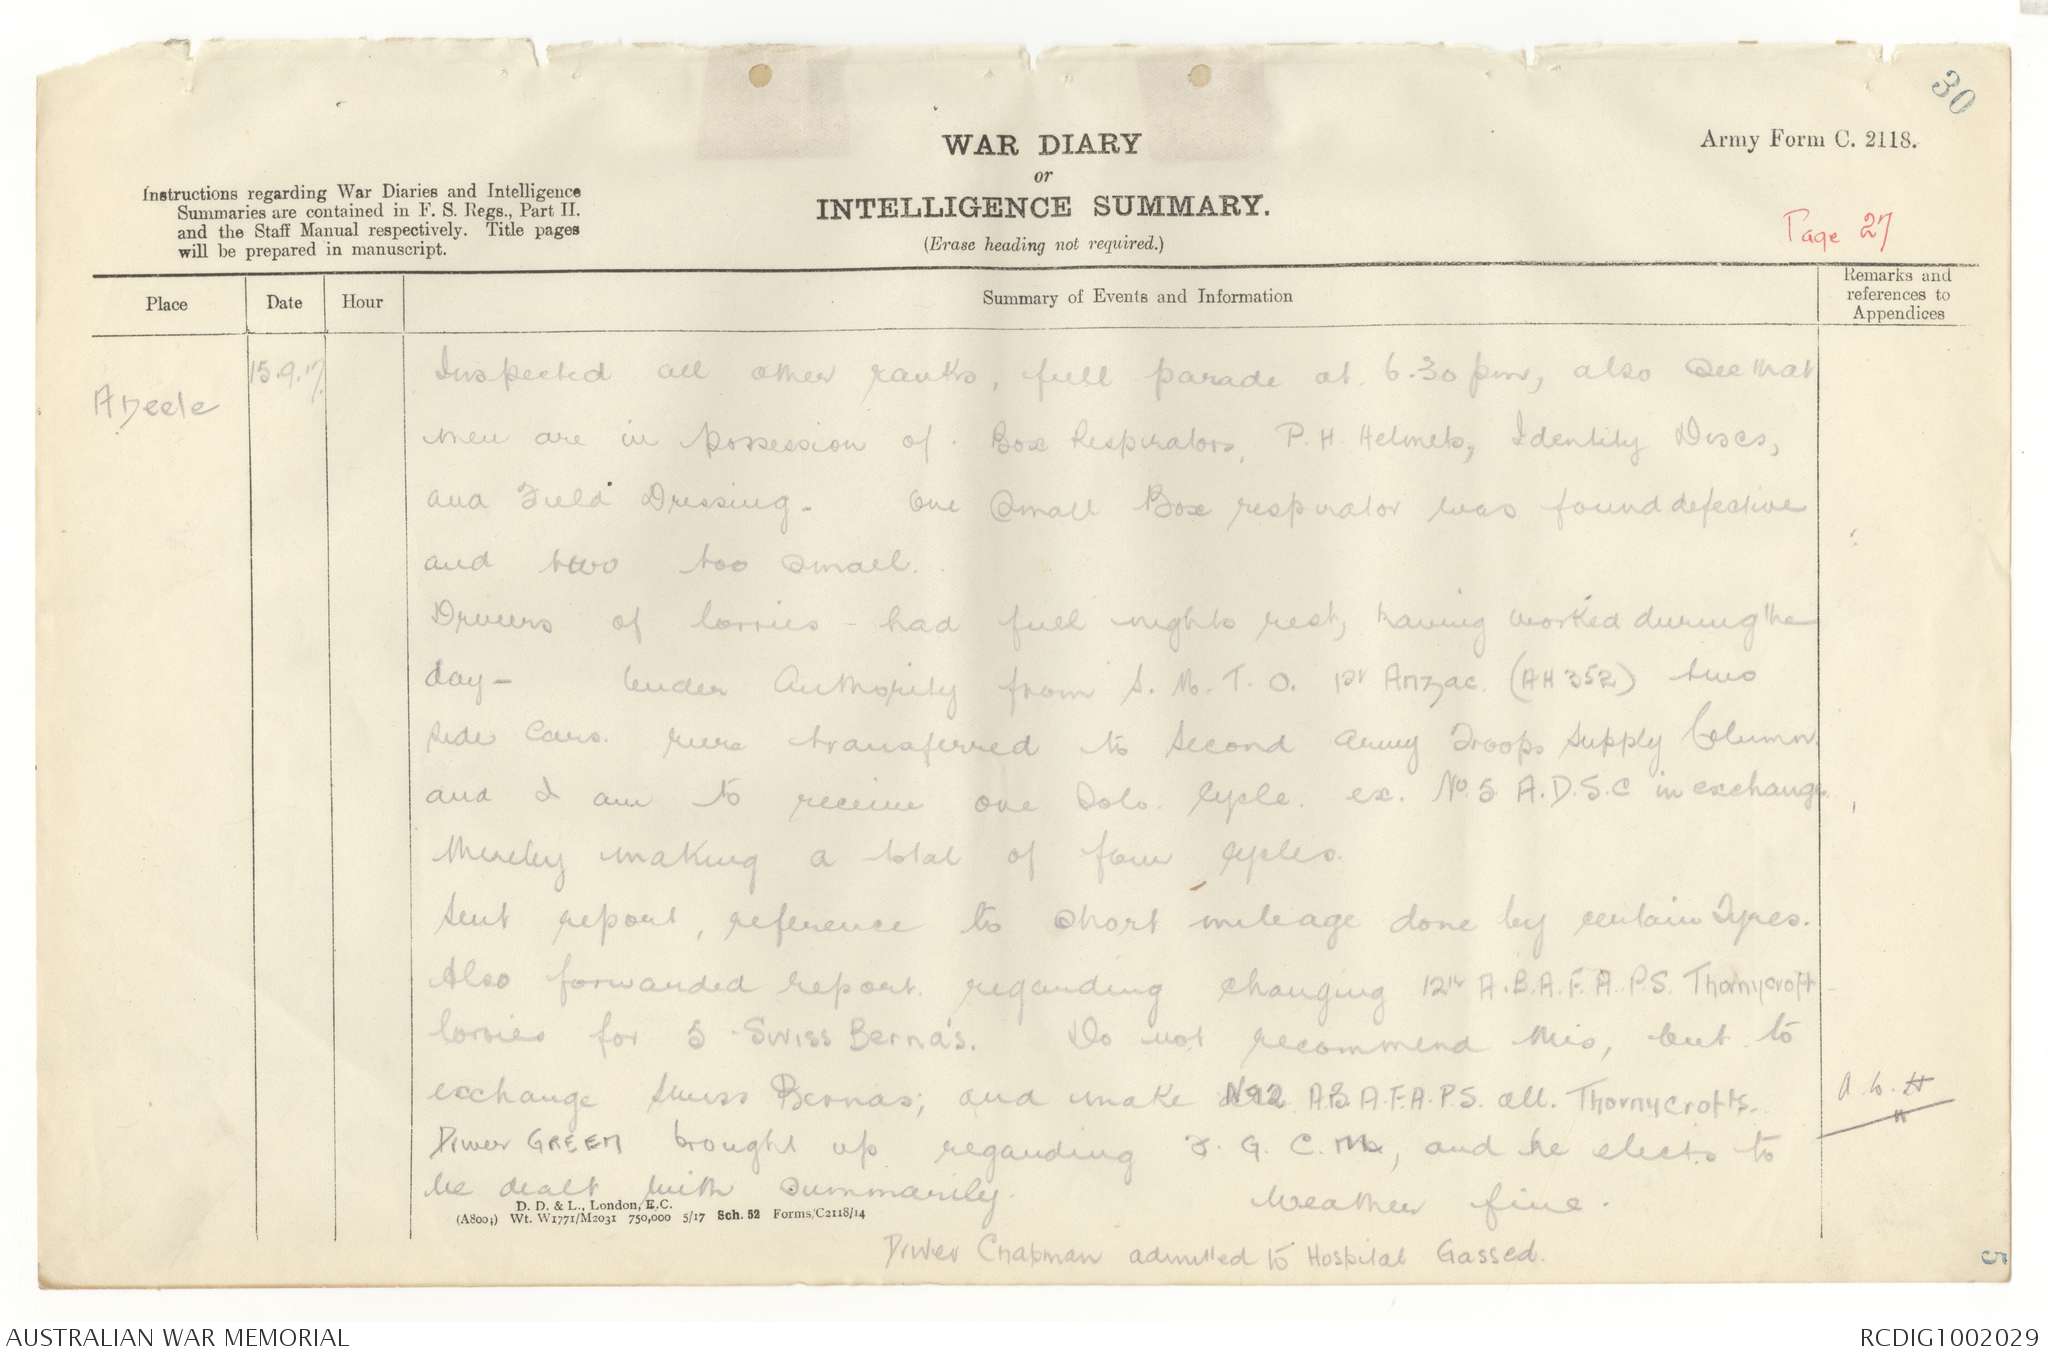 30
WAR DIARY
or
INTELLIGENCE SUMMARY.
(Erase heading not required.)
Army Form C. 2118.
Instructions regarding War Diaries and Intelligence
Summaries are contained in F. S. Regs., Part II.
and the Staff Manual respectively. Title pages
will be prepared in manuscript.
Page 27
Place
Date
Hour
Summary of Events and Information
Remarks and
references to
Appendices
Abeele
15.9.17.
Inspected all other ranks, full parade at 6.30 pm, also see that
men are in possession of Box Respirators, P.H. Helmets, Identity Discs,
and Field Dressing. One Small Box respirator was found defective
and two too small.
Drivers of lorries - had full nights rest, having worked during the
day - Under Authority from S. M. T. O. 1st Anzac. (AH 352) two
side Cars. were transferred to Second Army Troops Supply Column
and I am to receive one Solo. Cycle. ex. No. 5 A.D.S.C in exchange,
thereby making a total of four cycles.
Sent report, reference to short mileage done by certain Tyres.
Also forwarded report regarding changing 12th A.B.A.F.A.P.S. Thornycroft
lorries for 5 Swiss Berna's. Do not recommend this, but to
exchange Swiss Bernas; and make No 12 A.B.A.F.A.P.S. all. Thornycrofts.
Driver GREEN brought up regarding F. G. C. M., and he elects to
be dealt with summarily. Weather fine.
Driver Chapman admitted to Hospital Gassed.
D. D. & L., London, E.C.
(A8004) Wt. W1771/M2031 750,000 5/17 Sch. 52 Forms/C2118/14
AUSTRALIAN WAR MEMORIAL
RCDIG1002029